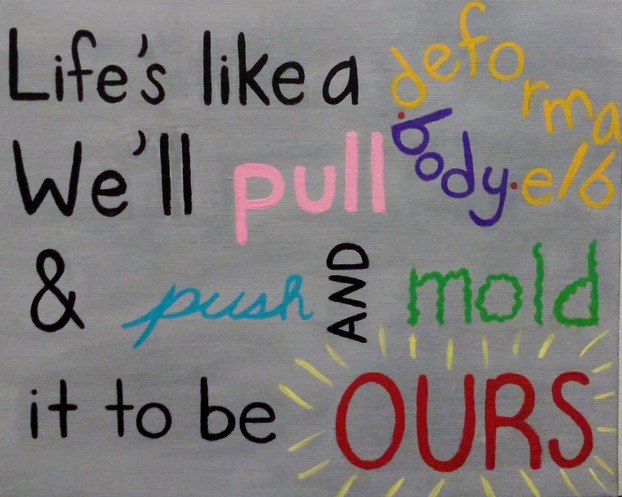 Life's like a deformable
body.
We'll pull
& push AND mold
it to be OURS